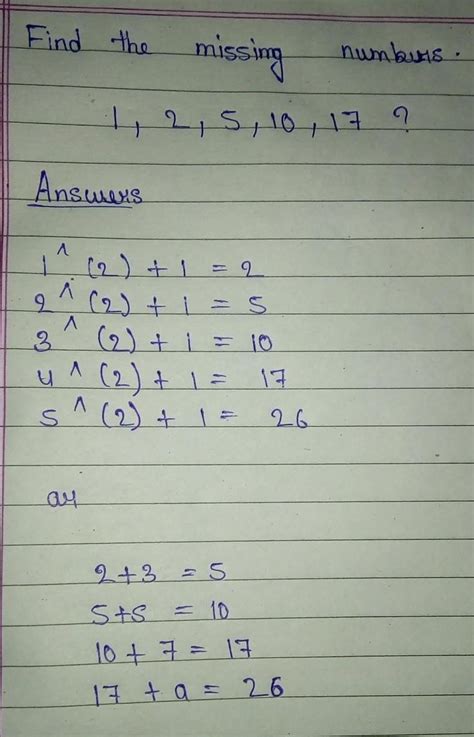 Find the missing numburs.
1, 2, 5, 10, 17 ?
Answers
1^(2) + 1 = 2
2^(2) + 1 = 5
3^(2) + 1 = 10
4^(2) + 1 = 17
5^(2) + 1 = 26
or
2+3 = 5
5+5 = 10
10 + 7 = 17
17 + 9 = 26